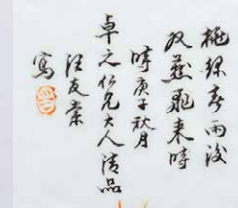 桃緑春雨後
双燕飛来時
時庚子秋月
卓之仁兄大人清品
汪友棠
寫